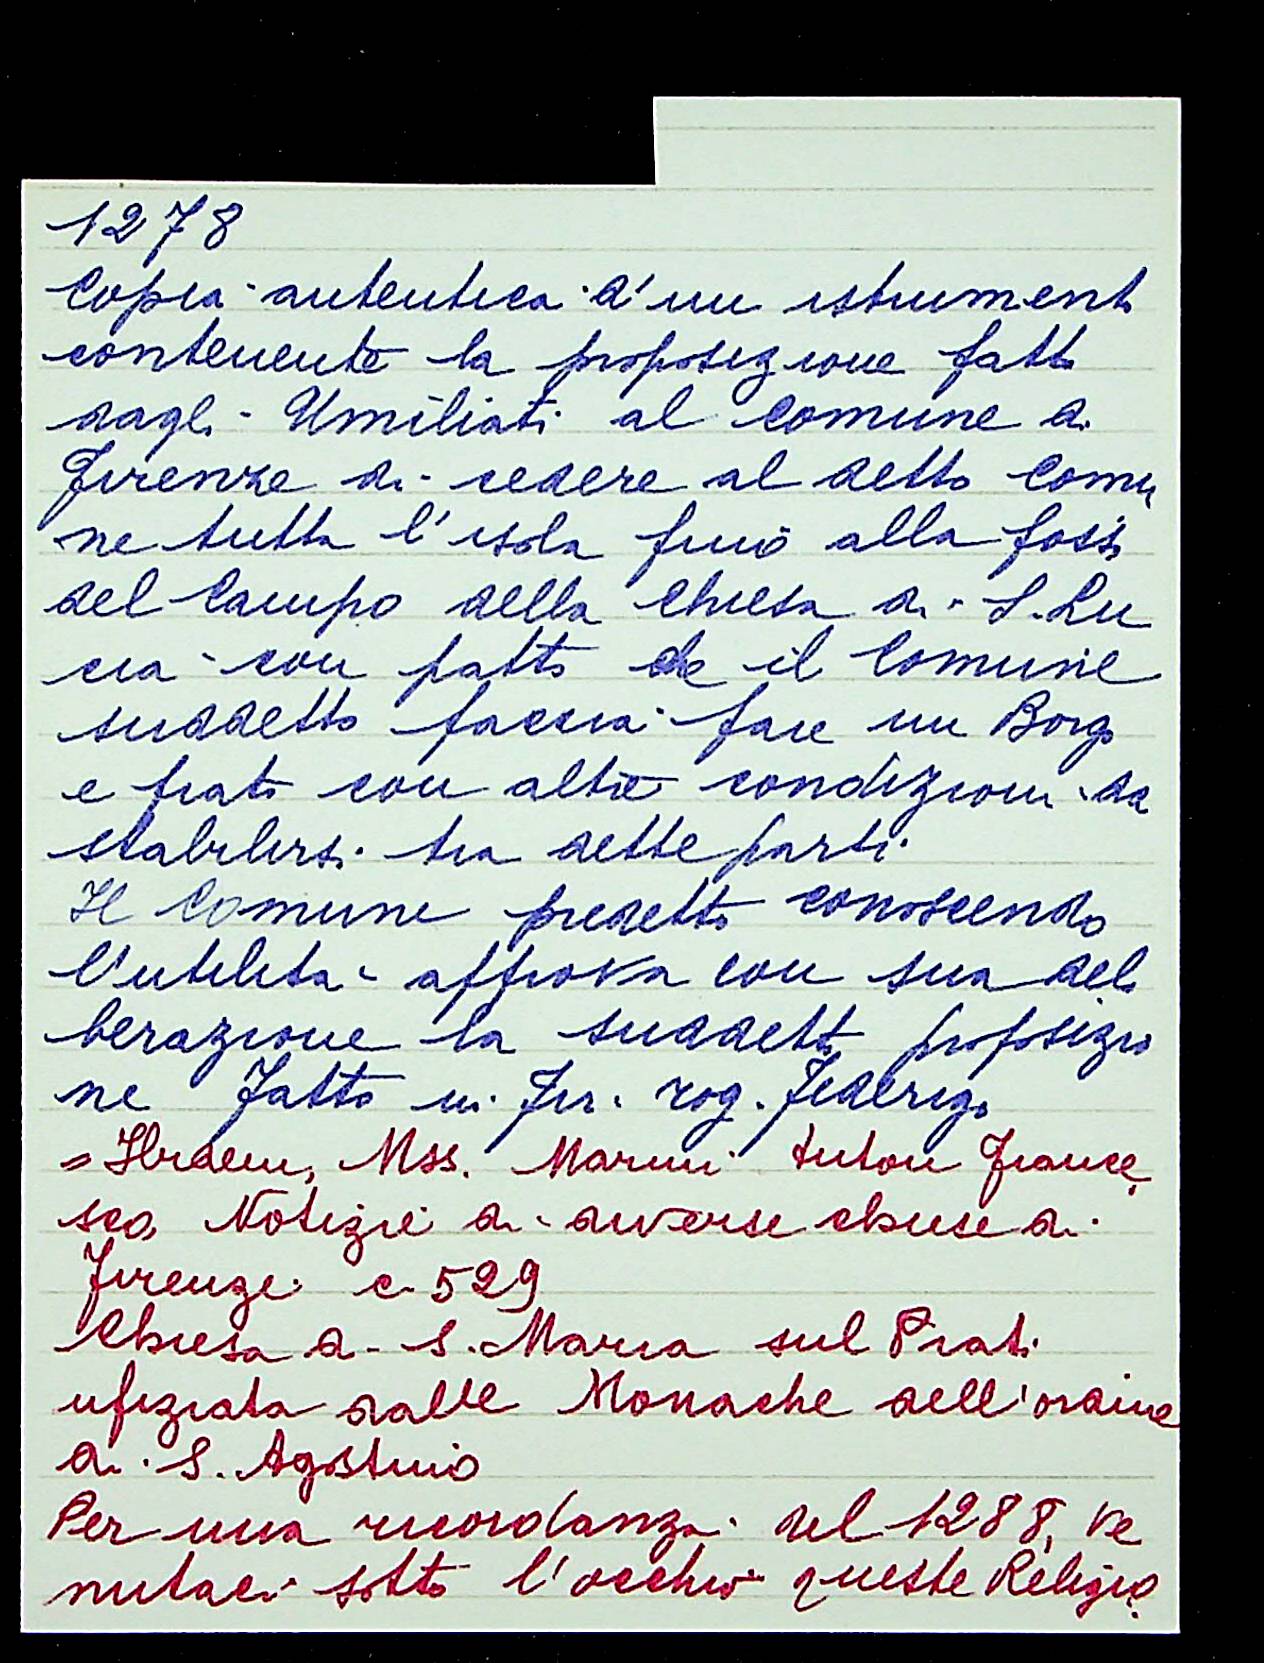 1278
Copia autentica d'un istrumento
contenente la proposizione fatta
dagli Umiliati al Comune di
Firenze di cedere al detto Comu
ne tutta l'isola fino alla fossa
del Campo della Chiesa di S. Lu
cia con patto che il Comune
suddetto faccia fare un Borgo
e prato con altre condizioni da
stabilirsi tra dette parti.
Il Comune predetto conoscendo
l'utilità approva con sua deli
berazione la suddetta proposizio
ne Fatto in Fir. rog. Federigo
= Ibidem, Mss. Marini Anton France
sco, Notizie di diverse chiese di
Firenze c. 529
Chiesa di S. Maria sul Prato
ufiziata dalle Monache dell'ordine
di S. Agostino
Per una ricordanza del 1288, ve
nutaci sotto l'occhio queste Religio